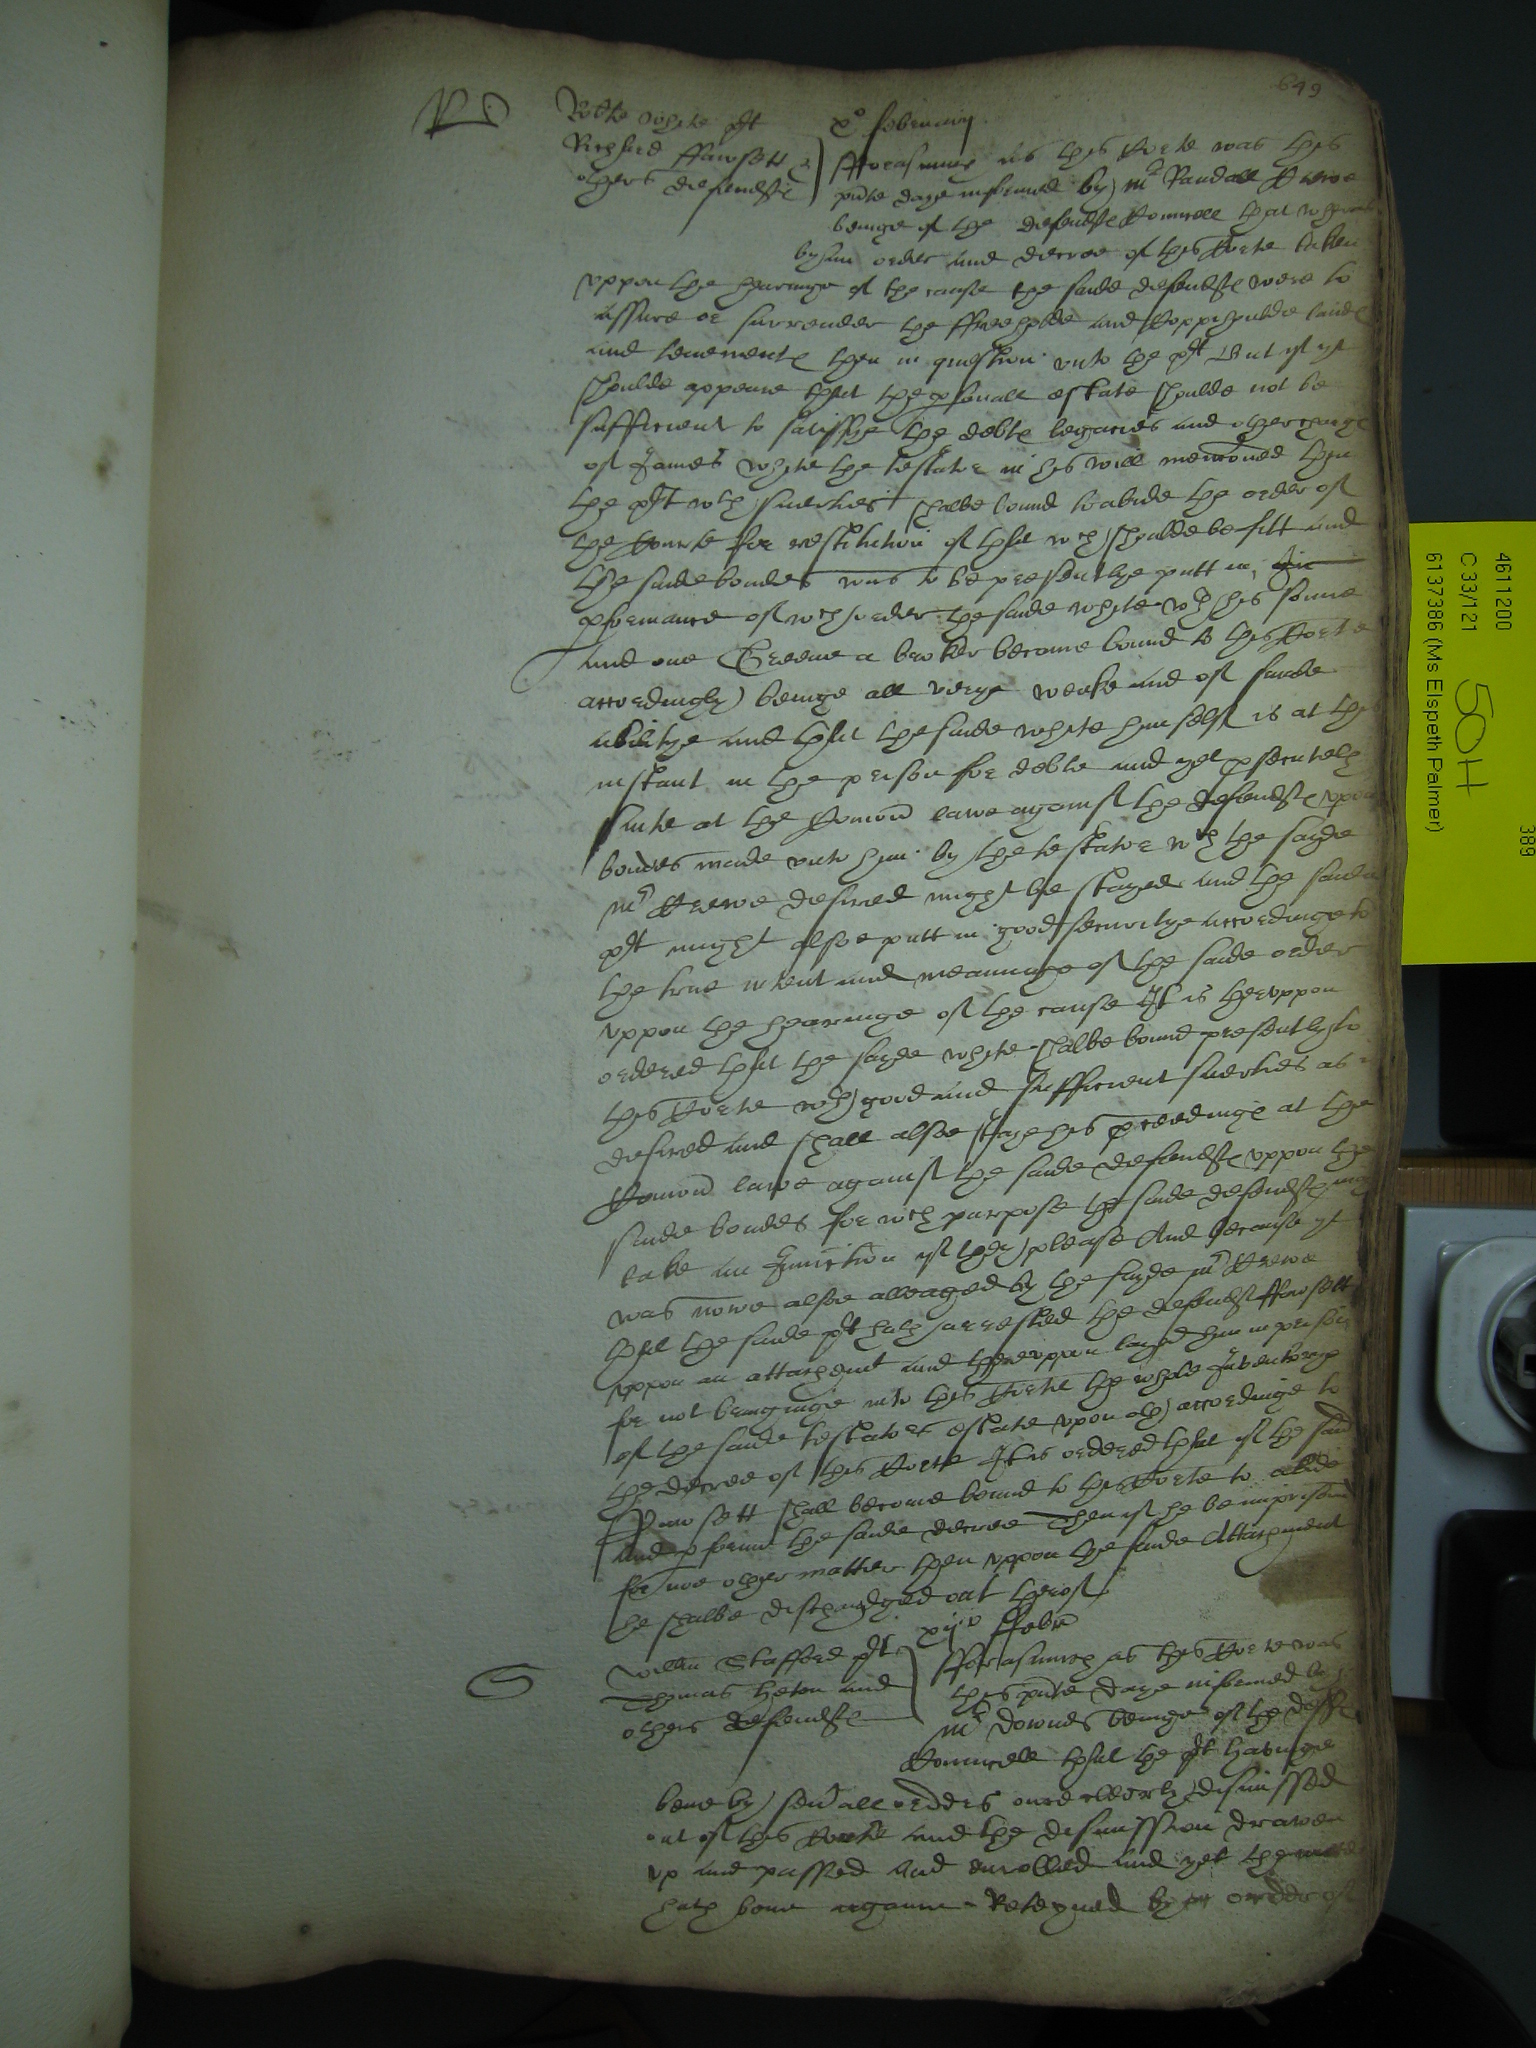 649
Rob'te White plt
Richard ffawsett &
others defendts
xo februarij
fforasmuch as this Corte was this
pnte daye informed by Mr Randall Crewe
beinge of the defendts Councell that whereas
by an order and decree of this Corte taken
vppon the hearinge of the cause the saide defendts were to
assure or surrender the ffreeholde and Coppihoulde landes
and tenements then in question vnto the plt But yf yt
shoulde appeare that the psonall estate shoulde not be
sufficient to satisfye the debts legacies and other charge
of James White the testator in his will mencioned then
the plt wth suerties shalbe bound to abide the order of
the Courte for restitucion of that wch shoulde be fitt and
the saide bondes was to be presentlye putt in, In
pformance of wch order the saide White wth his sonne
and one Greene a broker become bound to this Corte
accordingly beinge all verye weake and of smale
abilitye and that the saide White himself is at this
instant in the prison for debte and yet psecuteth
suite at the Comon lawe against the defendts vpon
bondes made vnto him by the testator wch the sayde
Mr Crewe desired might be stayed and the saide
plt might alsoe putt in good securitye accordinge to
the true intent and meaninge of the saide order
vppon the hearinge of the cause It is thervppon
ordered that the sayde White shalbe bound presently to
this Corte wth good and sufficient suerties as is
desired and shall alsoe stay his pceedings at the
Comon lawe against the saide defendts vppon the
saide bondes for wch purpose the saide defendts may
take an Iniunction yf they please And because yt
was nowe alsoe alleaged by the sayde Mr Crewe
that the saide plt hath arrested the defendt ffawsett
vppon an attachmt and therevppon layed him in prison
for not bringinge into this Corte the whole Inventorye
of the saide testators estate vpon oth accordinge to
the decree of this Corte It is ordered that yf the said
ffawsett shall become bound to this Corte to abide
and pforme the saide decree Then yf he be imprisoned
for noe other matter then vppon the saide Attachment
he shalbe dischardged out therof
xijo ffebr
Willm Stafford plt
Thomas Heton and
others defendts
fforasmuch as this Corte was
this pnte daye informed by
Mr Downes beinge of the deffts
Councell that the plt havinge
bene by seuall orders once cleerly dismissed
out of this Corte and the dismission drawen
vp and passed and enrolled and yet the matter
hath bene againe Reteyned by order of
4611200
C 33/121 50H
6137386 (Ms Elspeth Palmer)
389